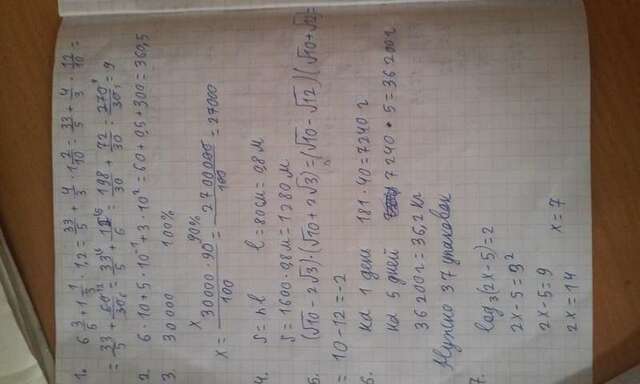 1. 6 3/5 + 1 1/3 · 1,2 = 33/5 + 4/3 · 1 2/10 = 33/5 + 4/3 · 12/10 =
= 33/5 + 60/30 = 33/5 + 12/6 = 198/30 + 72/30 = 270/30 = 9
2. 6 · 10 + 5 · 10⁻¹ + 3 · 10² = 60 + 0,5 + 300 = 360,5
3. 30 000 100%
x 90%
x = 30000 · 90 / 100 = 2 700 000 / 100 = 27000
4. S = nl l = 80 см = 0,8 м
S = 1600 · 0,8 м = 1280 м
5. (√10 - 2√3) · (√10 + 2√3) = (√10 - √12)(√10 + √12) =
= 10 - 12 = -2
6. на 1 день 181 · 40 = 7240 г
на 5 дней 7240 · 5 = 36 200 г
36 200 г = 36,2 кг
Нужно 37 упаковок
7.
log₃(2x - 5) = 2
2x - 5 = 3²
2x - 5 = 9
2x = 14 x = 7